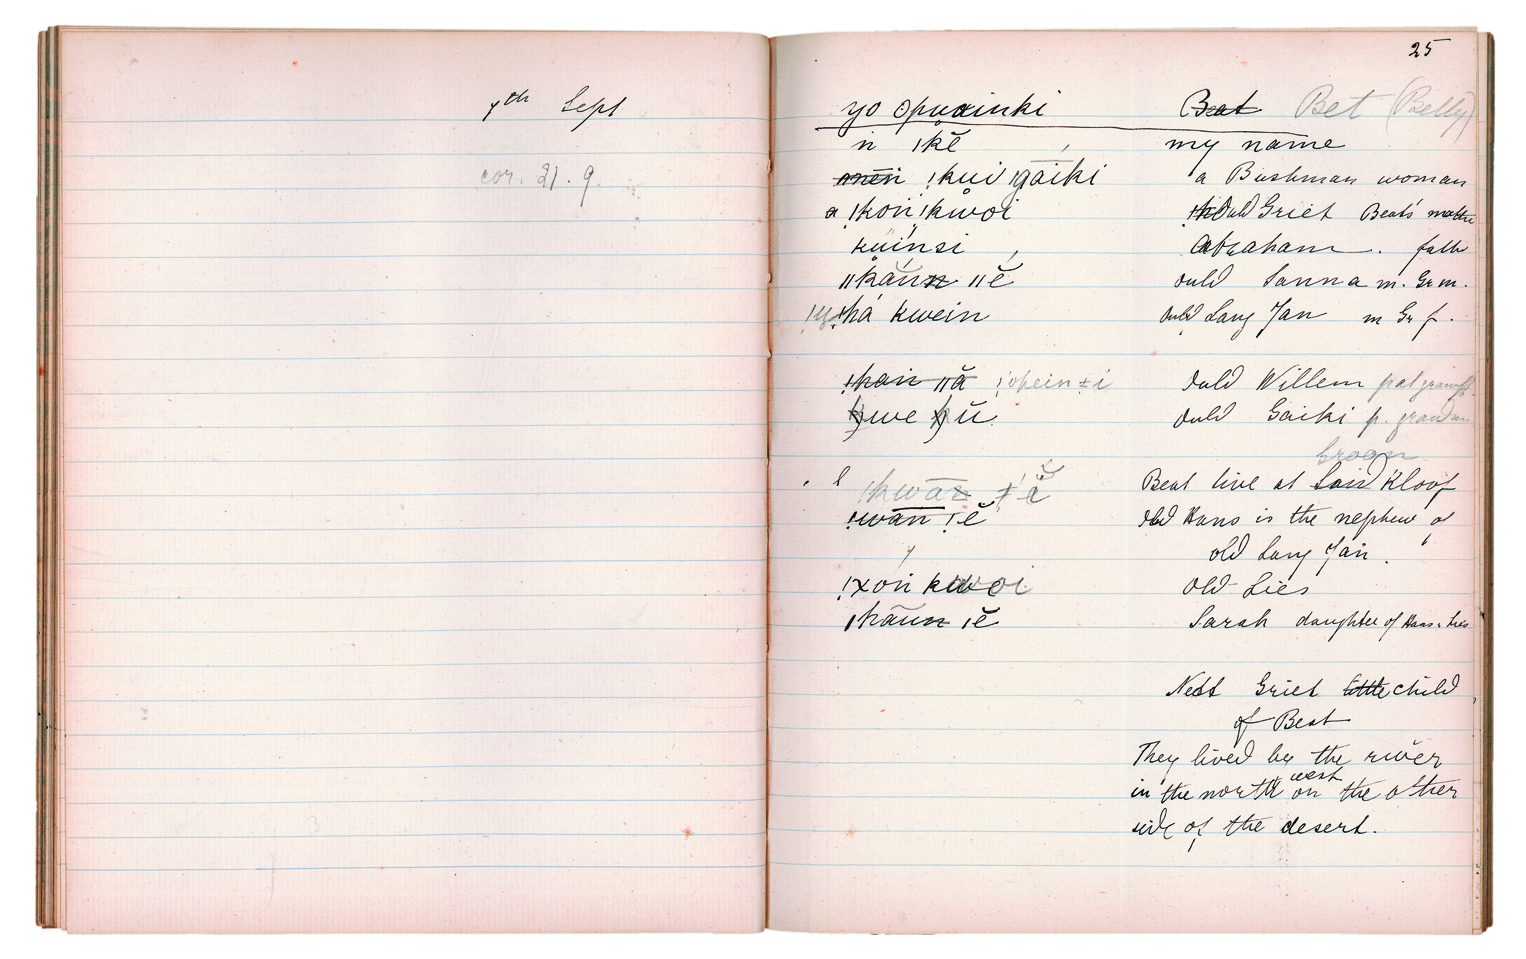 7th Sept
cor. 21. 9.
25
yo Opuainki Beat Bet (Betty)
n ǀkĕ my name
ǃkui a Bushman woman
a ǃkon ǃkwoi Ould Griet Beat's mother
kuinsi Abraham. father
ǁkāun ǁĕ ould Sanna m. Gr m.
ǃhá kwein ould Lang Jan m Gr f.
ǃhain ǁă Ould Willem pat grandf.
ould Gaiki p. grandm.
Groon
ǃkwān Beat live at Kloof
ǃwān ǃĕ old Hans is the nephew of
old Lang Jan.
ǃxoń kwoi Old Lies
ǀhāun ǀĕ Sarah daughter of Hans & Lies
Nett Griet little child
of Beat
They lived by the river
west
in the north on the other
side of the desert.